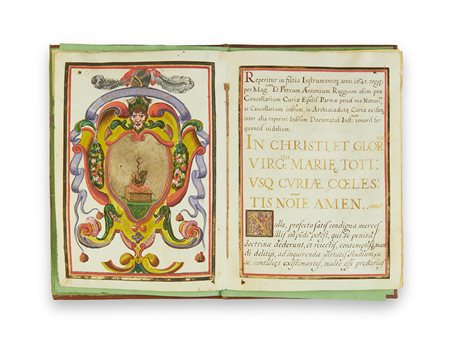 Reperitur in filtia Instrumentoꝝ anni 1641. rogat.
per Mag. D. Petrum Antonium Reggium olim pro
Cancellarium Curiæ Epīlis Parmæ penes me Notariū,
et Cancellarium infrum, in Archiuo dictæ Curiæ existen.
inter alia reperiri Infrum Doctoratus Instr. tenoris se-
quentis videlicet.
IN CHRISTI, ET GLOR
VIRG. MARIÆ, TOTI
VSQ CVRIÆ COELES
TIS NOIE AMEN.
Nulla profecto satis condigna merces
illis impendi potest, qui se penitus
doctrinæ dederunt, et reiectis, contemptisque
di delitijs, ad inquirenda
se contulere existimantes, multo esse